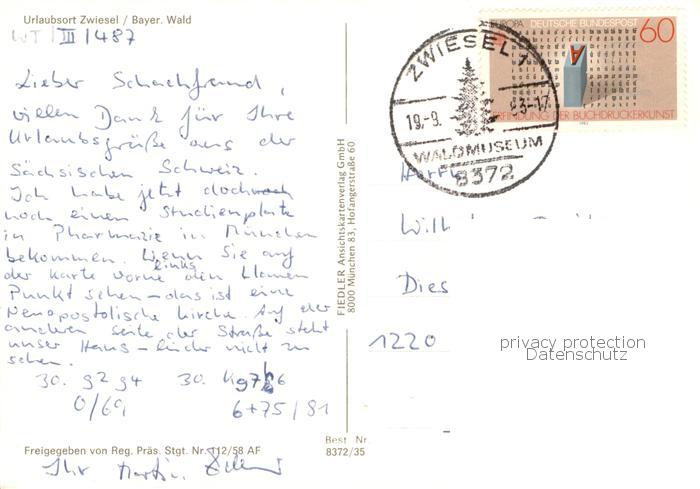 Urlaubsort Zwiesel / Bayer. Wald
WT / III / 487
Lieber Schachfreund,
vielen Dank für Ihre
Urlaubsgrüße aus der
Sächsischen Schweiz.
Ich habe jetzt doch noch
noch einen Studienplatz
in Pharmazie in München
bekommen. Wenn Sie auf
der Karte vorne links den kleinen
Punkt sehen – das ist eine
Neuapostolische Kirche. Auf der
anderen Seite der Straße steht
unser Haus – leider nicht zu
sehen.
30. g2 g4 30. Kg7 6
0/69 6+75/81
Ihr Martin
Freigegeben von Reg. Präs. Stgt. Nr. 112/58 AF
FIEDLER Ansichtskartenverlag GmbH
8000 München 83, Hofangerstraße 60
Best Nr.
8372/35
EUROPA DEUTSCHE BUNDESPOST 60
A
ERFINDUNG DER BUCHDRUCKERKUNST
ZWIESEL 1
19.-9. 83-17
WALDMUSEUM
8372
Herrn
Wilh
Dies
1220
privacy protection
Datenschutz